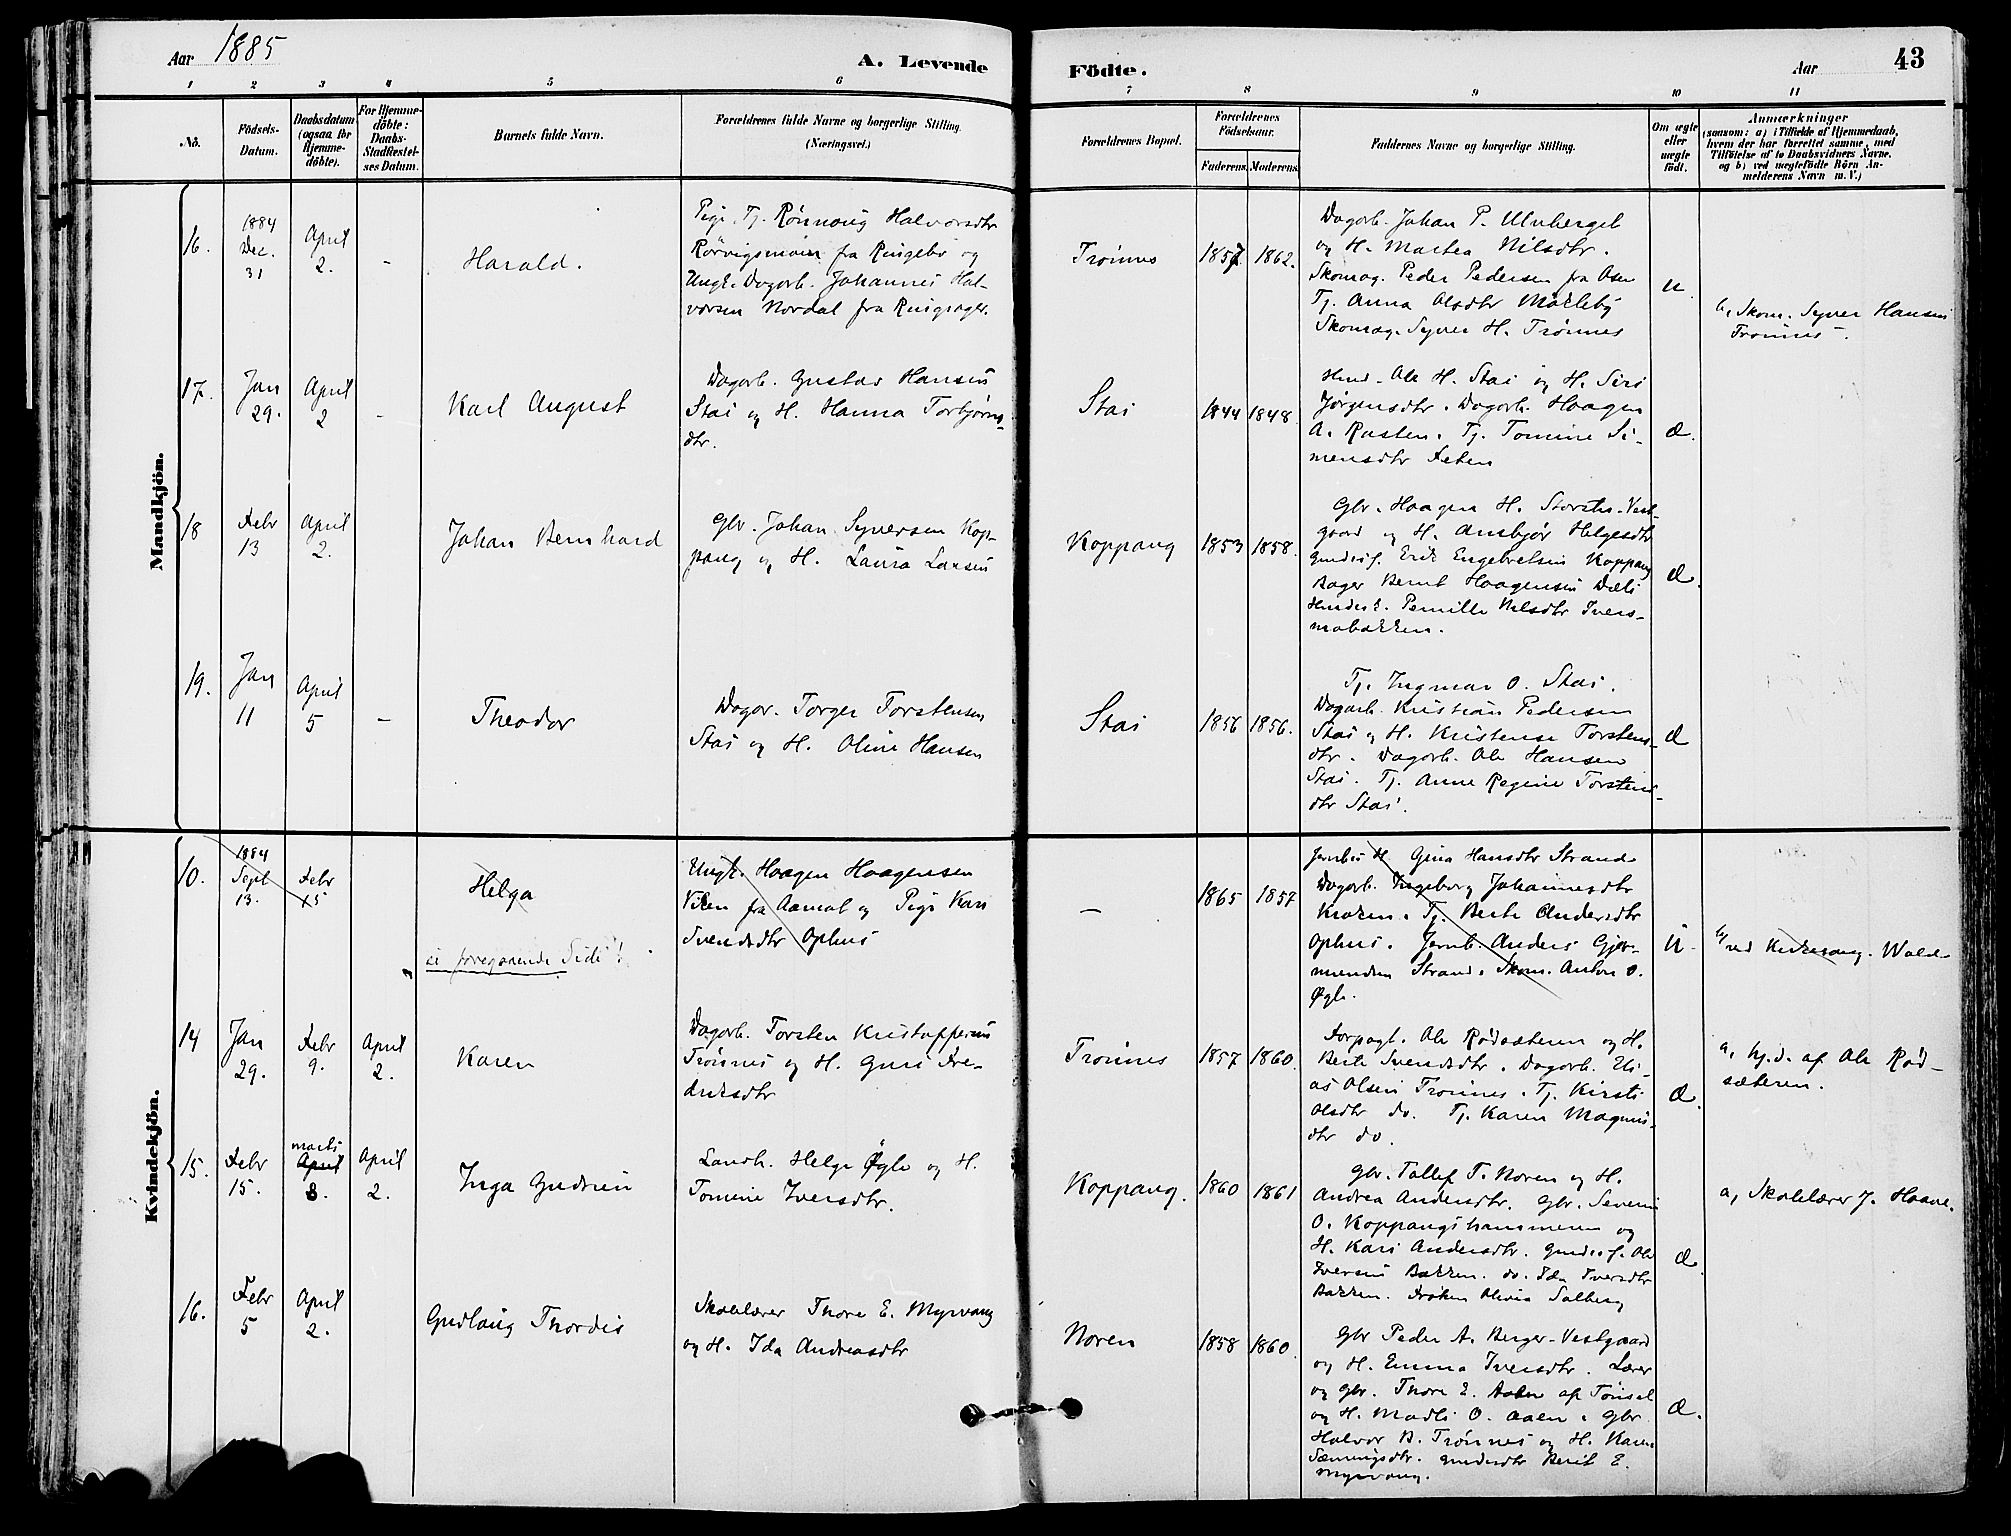 Aar 1885
A. Levende
Födte.
Aar
43
1 2 3 4 5 6 7 8 9 10 11
No.
Födsels-Datum.
Daabsdatum (ogsaa for Hjemme-döbte).
For Hjemme-döbte: Daabs-Stadfæstel-ses Datum.
Barnets fulde Navn.
Forældrenes fulde Navne og borgerlige Stilling.
(Næringsvei.)
Forældrenes Bopæl.
Forældrenes Födselsaar.
Faderens.
Moderens.
Faddernes Navne og borgerlige Stilling.
Om ægte eller uægte födt.
Anmærkninger
(saasom: a) i Tilfælde af Hjemmedaab,
hvem der har forrettet samme, med
Tilföielse af to Daabsvidners Navne,
og b) ved uægtefödte Börn An-
melderens Navn m. V.)
Mandkjön.
16.
1884
Dec.
31
April
2.
-
Harald.
Pige. Tj. Rønnaug Halvorsdtr
Rørvigsmoen fra Ringebo og
Ungk. Dagarb. Johannes Hal-
vorsen Nordal fra Ringsager.
Trønnes
1857
1862.
Dagarb. Johan P. Ulvberget
og H. Martea Nilsdtr.
Skomag. Peder Pedersen fra Osen
Tj. Anna Olsdtr Møkleby
Skomag. Syver H. Trønnes
u.
b, Skom. Syver Hansen
Trønnes -.
17.
Jan
29.
April
2
-
Karl August
Dagarb. Gustav Hansen
Stai og H. Hanna Torbjørns-
dtr.
Stai
1844
1848.
Husd. Ole H. Stai og H. Siri
Jørgensdtr. Dagarb. Haagen
A. Rasten. Tj. Tomine Si-
mensdtr Leten
æ.
18
Febr
13
April
2.
Johan Bernhard
Gbr. Johan Syversen Kop-
pang og H. Laura Larsen
Koppang
1853
1858.
Gbr. Haagen H. Storstu-Vest-
gaard og H. Ambjør Helgesdtr
Gmdssf. Erik Engebretsen Koppang
Bager Bernt Haagensen Dæli
Pernille Nilsdtr Ivers-
mobakken.
æ.
19.
Jan
11
April
5
-
Theodor
Dagar. Torger Torstensen
Stai og H. Oline Hansen
Stai
1856
1856.
Tj. Ingmar O. Stai.
Dagarb. Kristian Pedersen
Stai og H. Kristense Torstens-
dtr. Dagarb. Ole Hansen
Stai. Tj. Anne Regine Torstens-
dtr Stai.
æ
Kvindekjön.
10.
1884
Sept
13.
Febr
15
Helga
se foregaaende Side!
Ungk. Haagen Haagensen
Viken fra Aamot og Pige Kari
Svendsdtr Ophus
-
1865
1857
Jernb. H. Gina Hansdtr Strand.
Dagarb. Ingeborg Johannesdtr
Kroken. Tj. Berte Andersdtr
Ophus. Jernb. Anders Gjør-
menden Strand. Skom. Anton O.
Øgle.
u.
b, ved Kirkesang. Wold.
14
Jan
29.
Febr
9.
April
2.
Karen
Dagarb. Torsten Kristoffersen
Trønnes og H. Guri Fre-
driksdtr
Trønnes
1857
1860.
Forpagt. Ole Rødsæteren og H.
Berte Svendsdtr. Dagarb. Eli-
as Olsen Trønnes. Tj. Kirsti
Olsdtr do. Tj. Karen Magnus-
dtr do.
æ.
a, hj.d. af Ole Rød-
sæteren.
15.
Febr
15.
marts
April
8.
April
2.
Inga Gudrun
Landh. Helge Øgle og H.
Tomine Iversdtr.
Koppang.
1860
1861
Gbr. Tollef T. Noren og H.
Andrea Andersdtr. Gbr. Severin
O. Koppangshammeren og
H. Kari Andersdtr. Gmdssf. Ole
Iversen Bakken. do. Ida Iversdtr
Bakken. Frøken Olivia Solberg
æ.
a, Skolelærer J. Haave.
16.
Febr
5
April
2.
Gudlaug Thordis
Skolelærer Thore E. Myrvang
og H. Ida Andreasdtr
Noren
1858
1860.
Gbr Peder A. Berger-Vestgaard
og H. Emma Iversdtr. Lærer
og Gbr. Thore E. Aalen af Tönset
og H. Madli O. Aalen. Gbr
Halvor B. Trønnes og H. Karen
Sæmingsdtr. Gmdsdtr Berit E.
Myrvang.
æ.